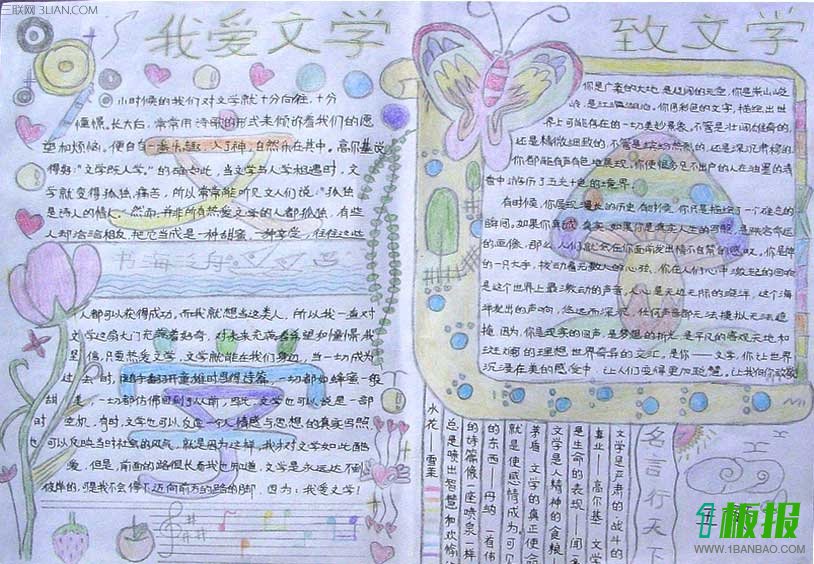 三联网 3LIAN.COM
我爱文学
小时候的我们对文学就十分向往,十分
憧憬。长大白,常常用诗歌的形式来倾诉着我们的愿
望和烦恼。便自
高尔基说
得好:"文学既人学。"
当文学与人学相遇时,文
学就变得孤独,痛苦,所以常常能听见文人们说:"孤独
是诗人的情人。"然而,并非所有热爱文学的人都孤独,有些
人却恰恰相反,把它当成是一种甜蜜,一种文学,往往这些
书海之舟
人都可以获得成功。而我就想当这类人,所以我一直对
文学这扇大门充满着好奇,对未来充满着希望和憧憬。我
坚信,只要热爱文学,文学就能在我们身边,当一切成为
过去时,随手翻开童稚时
一切都如蜂蜜一般
甜美,一切都仿佛回到了从前,因此,文学也可以说是一部
时空机,有时,文学也可以反应一个人情感与思想的真实写照
也可以反映当时社会的风气,就是因为这样,我才对文学如此酷
爱,但是,前面的路很长着我也知道,文学是永远达不到
彼岸的,可是我不会停下迈向前方的路的脚,因为:我爱文学!
致文学
你是广袤的大地,是辽阔的天空,你是崇山峻
岭,是江河湖泊。你用彩色的文字,描绘出世
界上可能存在的一切美妙景象,不管是壮阔雄奇的,
还是精微细致的,不管是缤纷热烈的,还是深沉肃穆的
你都能有声有色地展现,你使很多足不出户的人在油墨的清
香中游历了五光十色的境界。
有时候,你展现漫长的历史,有时候,你只是描绘了一个难忘的
瞬间。如果你真诚,真实,如果你是真实人生的写照,是跌宕命运
的画像,那么,人们就会在你面前发出情不自禁的感叹,你是神
的一只大手,拨动着无数人的心弦,你在人们心中激起的回响
是这个世界上最激动的声音,人心是无边无际的海洋,这个海
洋发出的声响,悠远而深沉,任何声音都无法模拟无法遮
掩。因为,你是现实的回声,是梦想的折光,是平凡的客观天地和
斑斓的理想世界奇异的交汇,是你——文学,你让世界
沉浸在美的感受中,让人们变得更加聪慧。
名言行天下
文学是严肃的战斗的
事业——高尔基 文学
是生命的表现——闻一多
文学是人精神的食粮——
茅盾 文学的真正使命
就是使感情成为可见
的东西——丹纳 最伟大
的诗篇像一座喷泉一样
总是喷出智慧和欢愉的
水花——雪莱
板报
WWW.1BANBAO.COM